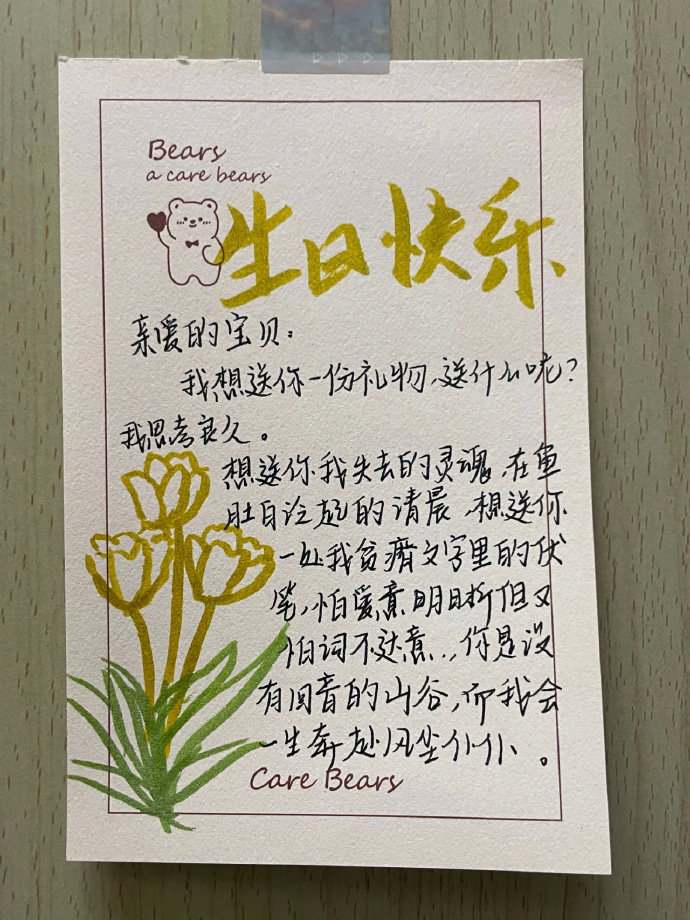 Bears
a care bears
生日快乐
亲爱的宝贝：
我想送你一份礼物，送什么呢？
我思考良久。
想送你我失去的灵魂，在鱼
肚白泛起的清晨，想送你
一处我贫瘠文字里的伏
笔，怕爱意明晰但又
怕词不达意..，你是没
有回音的山谷，而我会
一生奔赴风尘仆仆。
Care Bears